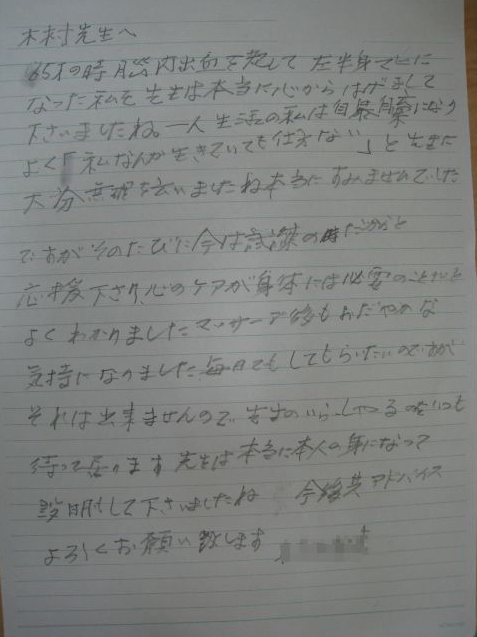 木村先生へ
65才の時脳内出血を起して左半身
なった私を先生は本当に心からはげまして
下さいましたね。一人生活の私は自暴自棄になり
よく「私なんか生きていても仕方ない」と先生に
大分無理を云いましたね本当にすみませんでした
ですがそのたびに今は試練の時だからと
応援下さり、心のケアが身体には必要のことだと
よくわかりましたマッサージ後もおだやかな
気持になりました毎日でもしてもらいたいのですが
それは出来ませんので先生のいらっしゃるのをいつも
待って居ります先生は本当に本人の身になって
説明して下さいましたね 今後共アドバイス
よろしくお願い致します